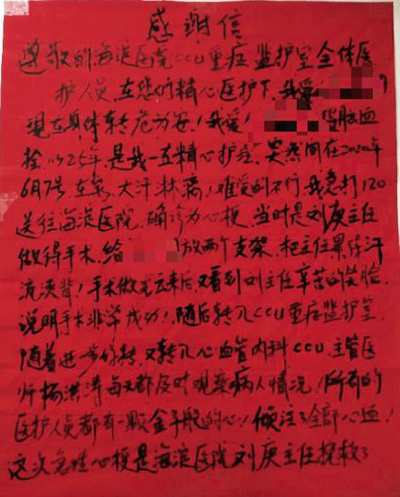 感谢信
尊敬的海淀医院CCU重症监护室全体医
护人员,在您们精心医护下,我爱
现在身体转危为安!我爱 患脑血
栓以25年,是我一直精心护理。突然间在2020年
6月7号左氧,大汗淋漓!难受的不行,我急打120
送往海淀医院,确诊为心梗,当时是刘庚主任
做得手术,给 放两个支架,刘主任累得汗
流浃背!手术做完出来后,又看到刘主任辛苦的笑脸,
说明手术非常成功!随后转入CCU重症监护室,
随着进一步好转,又转入心血管内科CCU,主管医
师杨洪涛每天都及时观察病人情况!所有的
医护人员都有一颗金子般的心!倾注了全部心血!
这次急性心梗是海淀医院刘庚主任挽救了